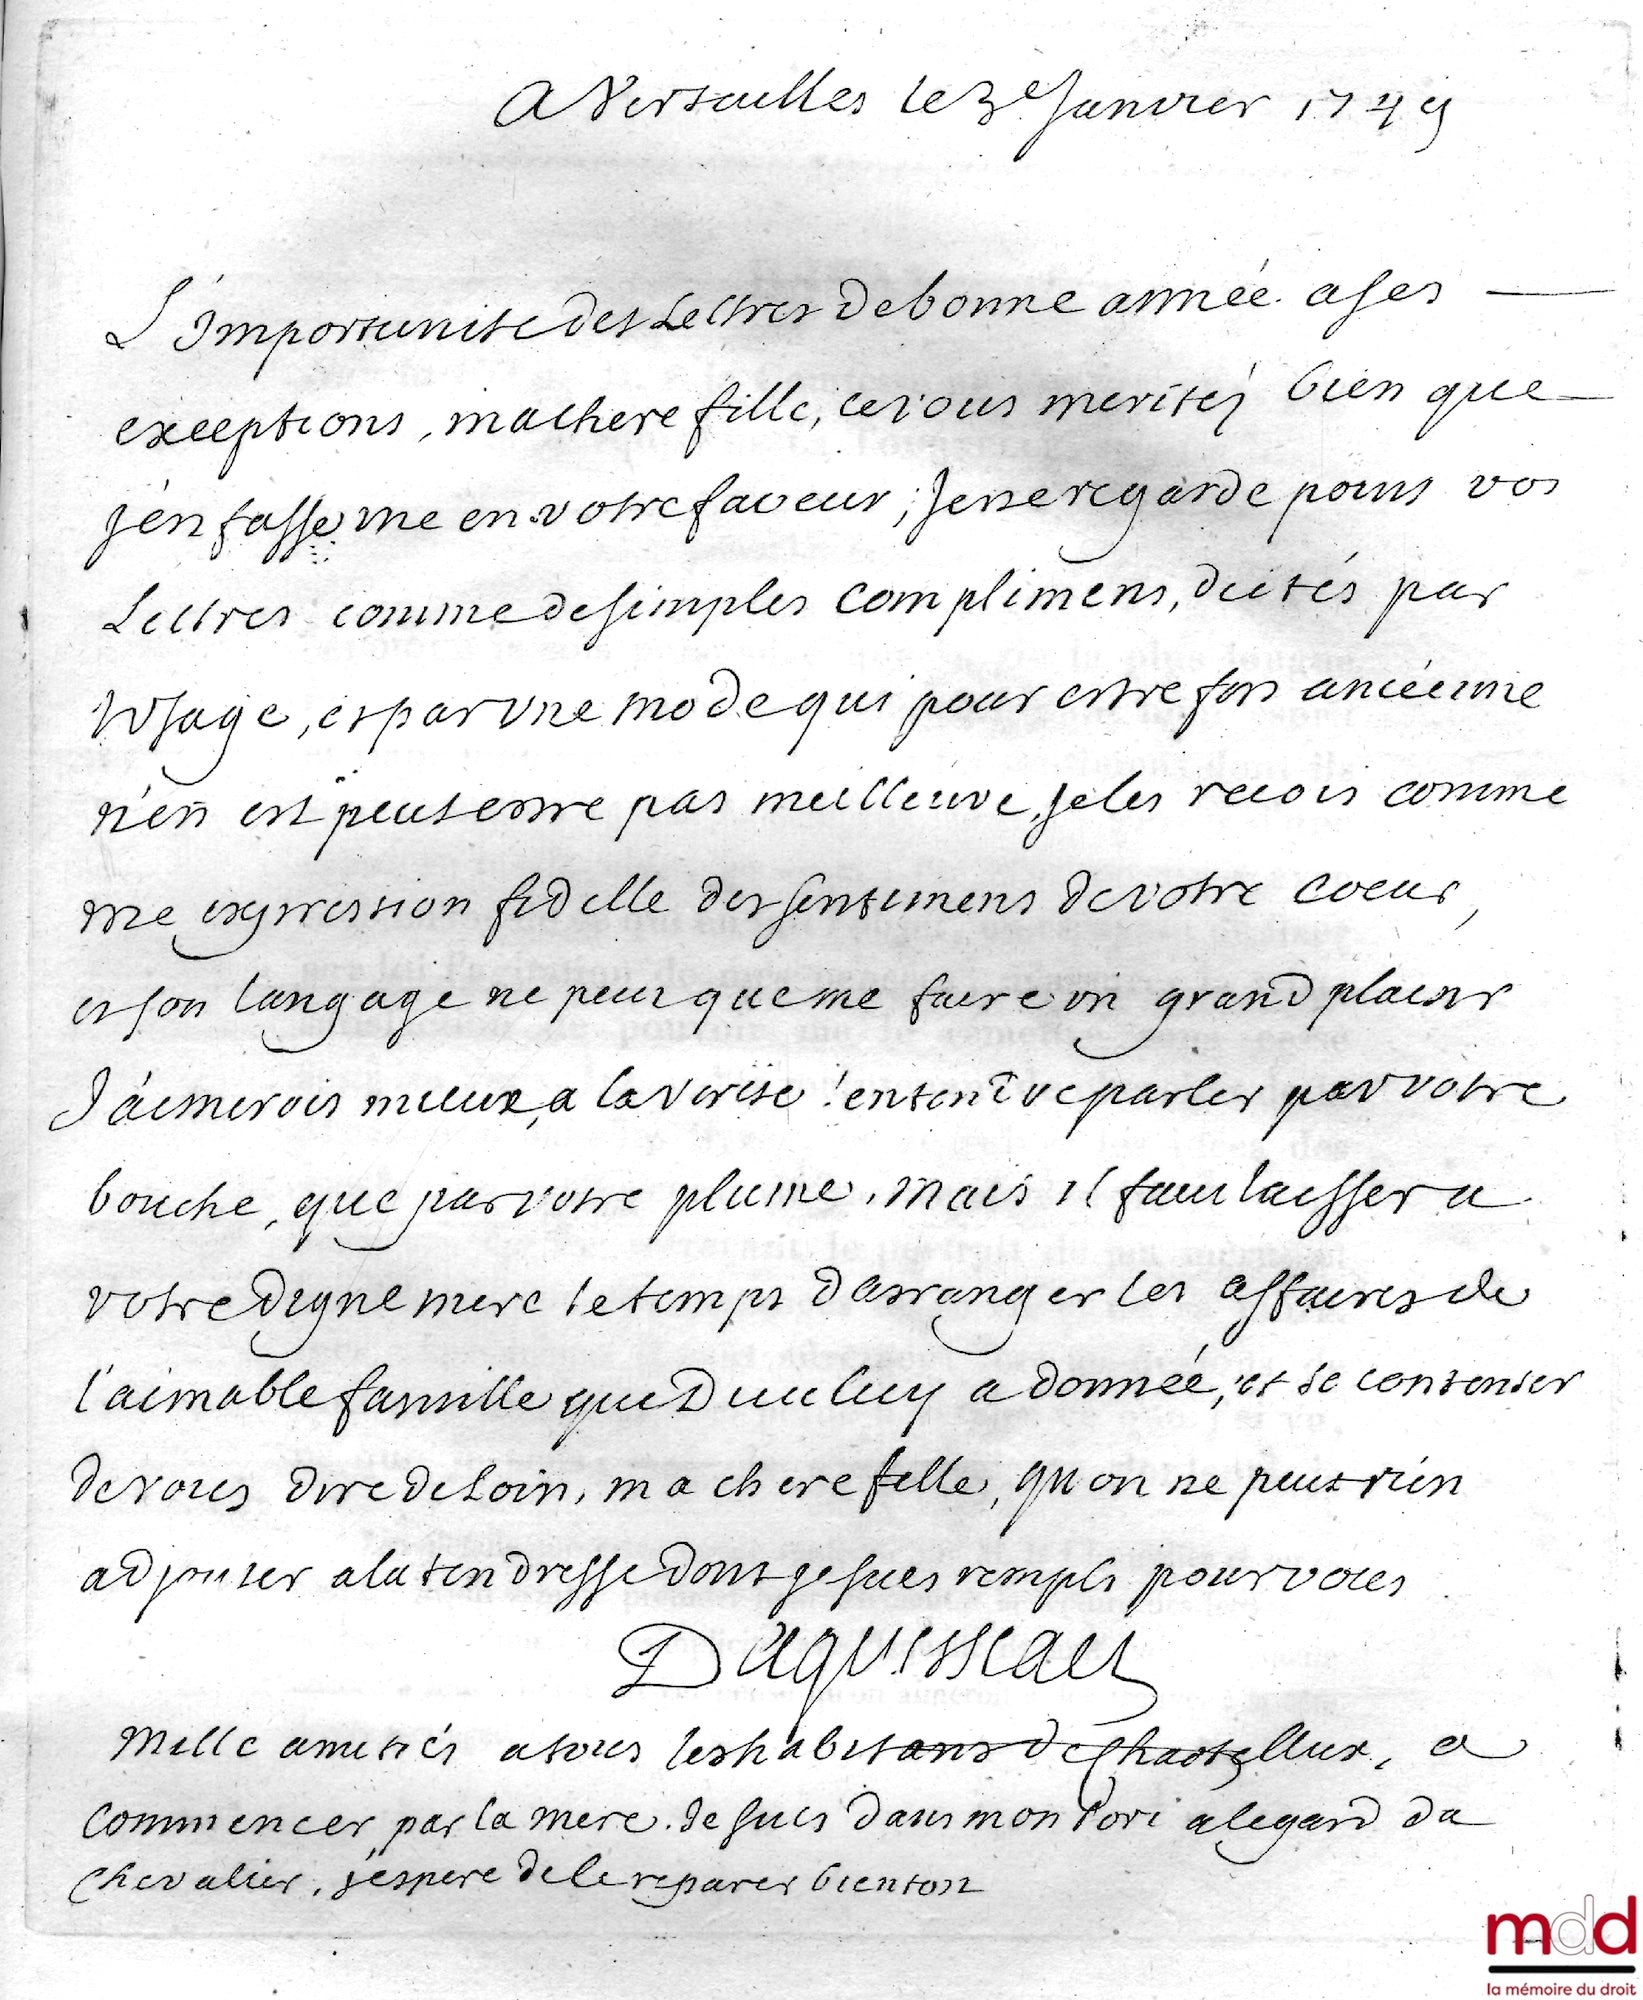 A Versailles le 3e Janvier 1749
L'importunité des Lettres de bonne année a ses
exceptions, ma chere fille, et vous merités bien que
j'en fasse une en votre faveur; Je ne regarde point vos
Lettres comme de simples complimens, dictés par
l'Usage, et par une mode qui pour estre fort ancienne
n'en est peut estre pas meilleure, Je les recois comme
une expression fidelle des sentimens de votre coeur,
et son langage ne peut que me faire un grand plaisir
J'aimerois mieux, a la verité l'entendre parler par votre
bouche, que par votre plume, mais il faut laisser a
votre digne mere le temps d'arranger les affaires de
l'aimable famille que Dieu luy a donnée, et se contenter
de vous dire de Loin, ma chere fille, qu'on ne peut rien
adjouter a la tendresse dont je suis rempli pour vous
Daguesseau
Mille amitiés a tous les habitans de Chastellux, a
commencer par la mere. Je suis dans mon tort a l'egard du
chevalier, j'espere de le reparer bientost
mdd
la mémoire du droit